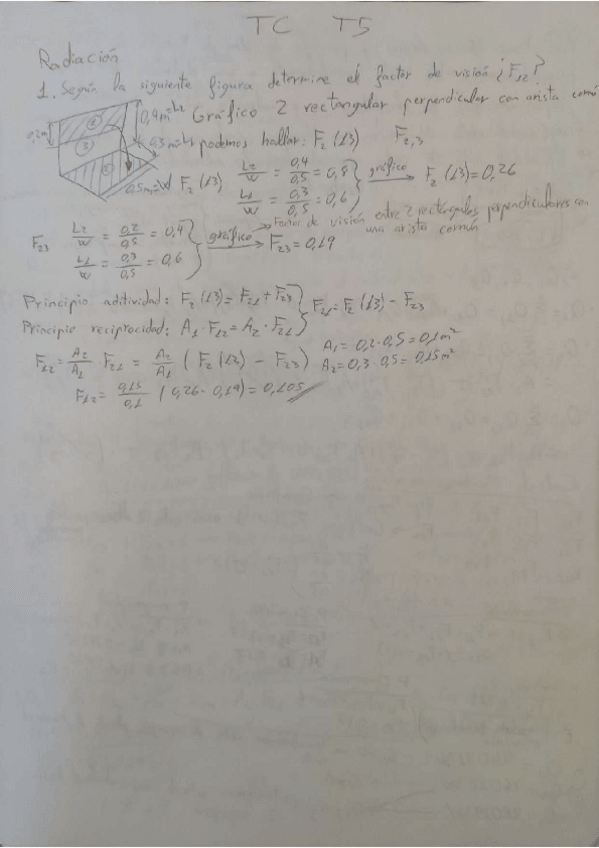 TC T5
Radiación
1. Según la siguiente figura determine el factor de visión ¿F12?
0,4m=L2 Gráfico 2 rectangular perpendicular con arista común
0,2m
0,3m=L1 podemos hallar: F2(13) F2,3
0,5m=W F2(13) L2/W = 0,4/0,5 = 0,8 L1/W = 0,3/0,5 = 0,6 } gráfico → F2(13) = 0,26
F23 L2/W = 0,2/0,5 = 0,4 L1/W = 0,3/0,5 = 0,6 } gráfico → F23 = 0,19
Factor de visión entre 2 rectángulos perpendiculares con
una arista común
Principio aditividad: F2(13) = F21 + F23 } F21 = F2(13) - F23
Principio reciprocidad: A1·F12 = A2·F21
A1 = 0,2·0,5 = 0,1 m²
A2 = 0,3·0,5 = 0,15 m²
F12 = A2/A1 · F21 = A2/A1 (F2(13) - F23)
F12 = 0,15/0,1 (0,26 - 0,19) = 0,105